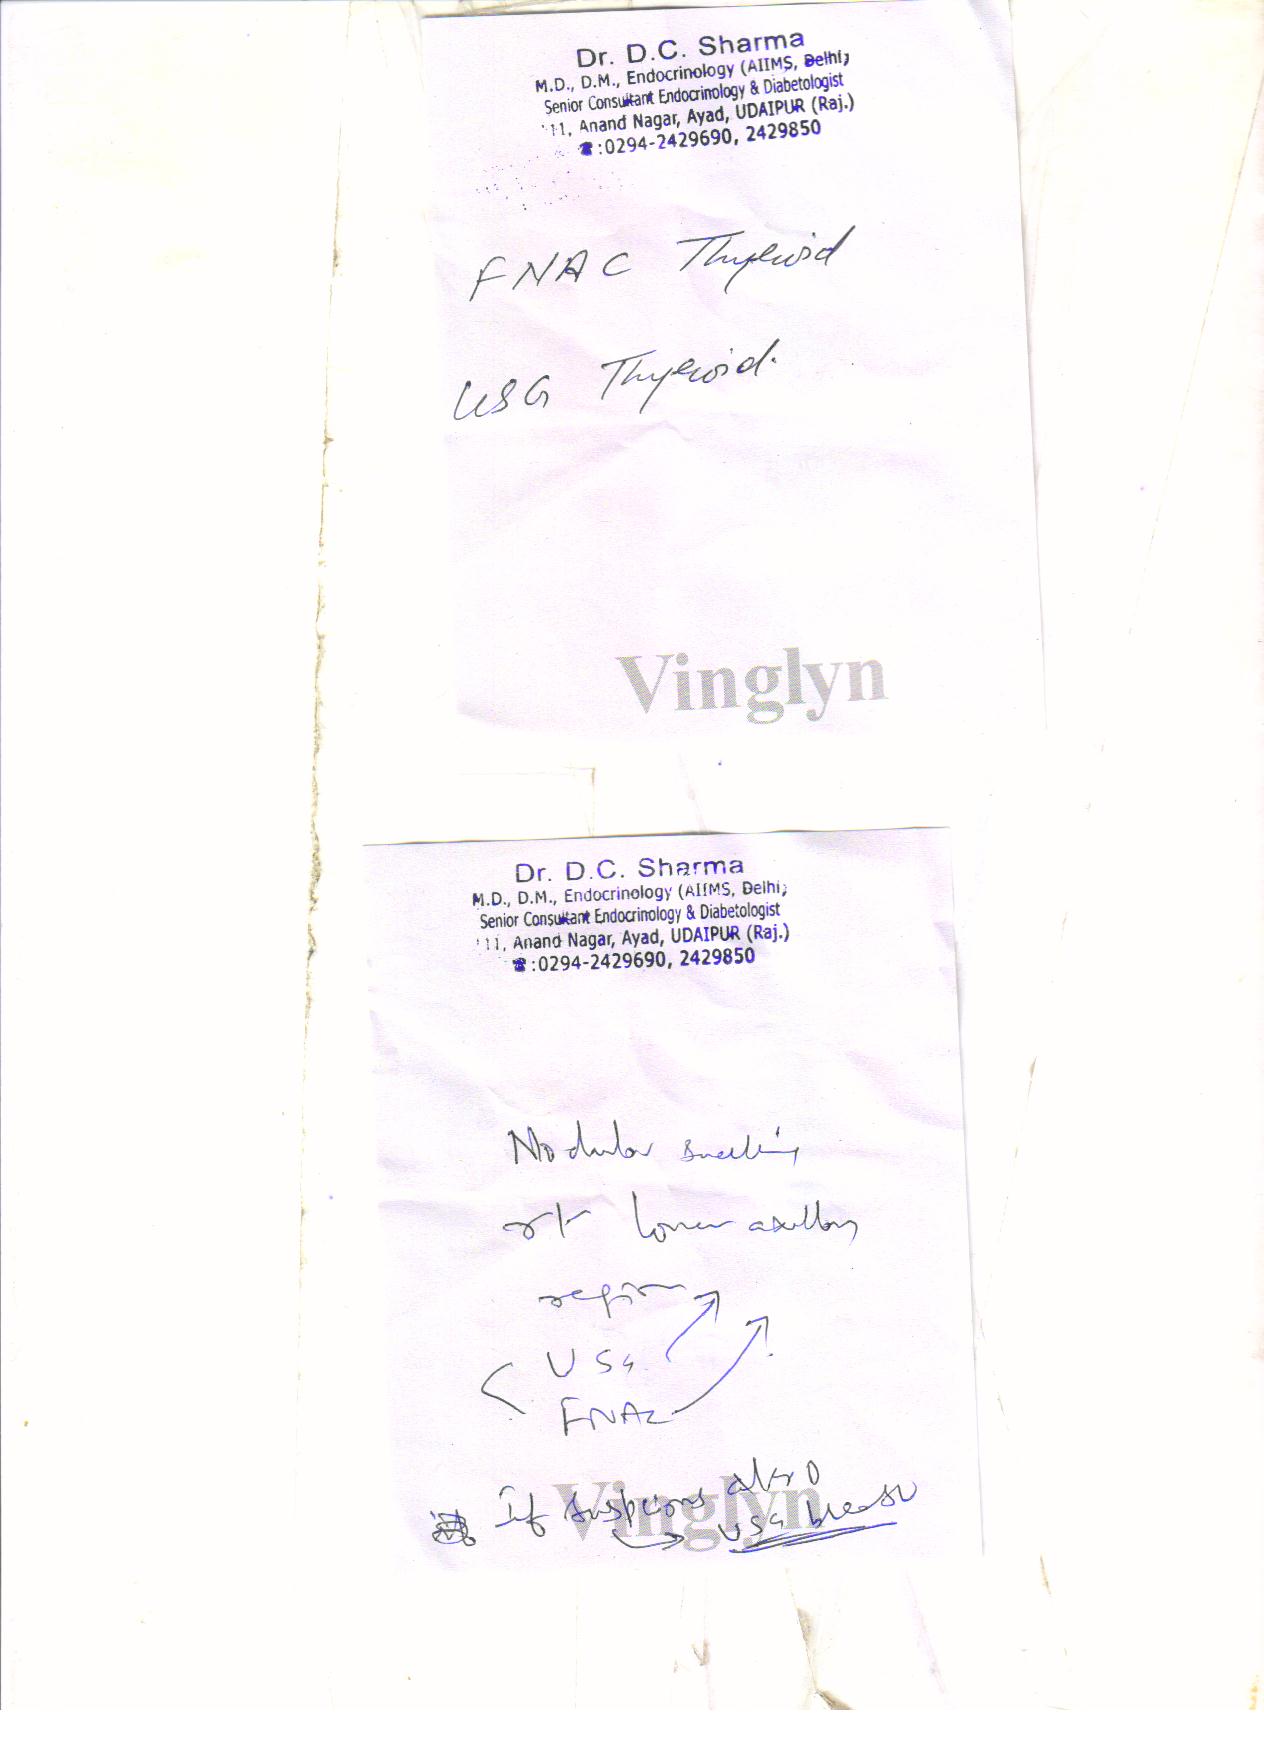 Dr. D.C. Sharma
M.D., D.M., Endocrinology (AIIMS, Delhi)
Senior Consultant Endocrinology & Diabetologist
11, Anand Nagar, Ayad, UDAIPUR (Raj.)
☎:0294-2429690, 2429850
FNAC Thyroid
USG Thyroid.
Vinglyn
Dr. D.C. Sharma
M.D., D.M., Endocrinology (AIIMS, Delhi)
Senior Consultant Endocrinology & Diabetologist
11, Anand Nagar, Ayad, UDAIPUR (Raj.)
☎:0294-2429690, 2429850
Nodular swelling
rt lower axillary
region
USG
FNAC
If suspicious also
USG breast
Vinglyn